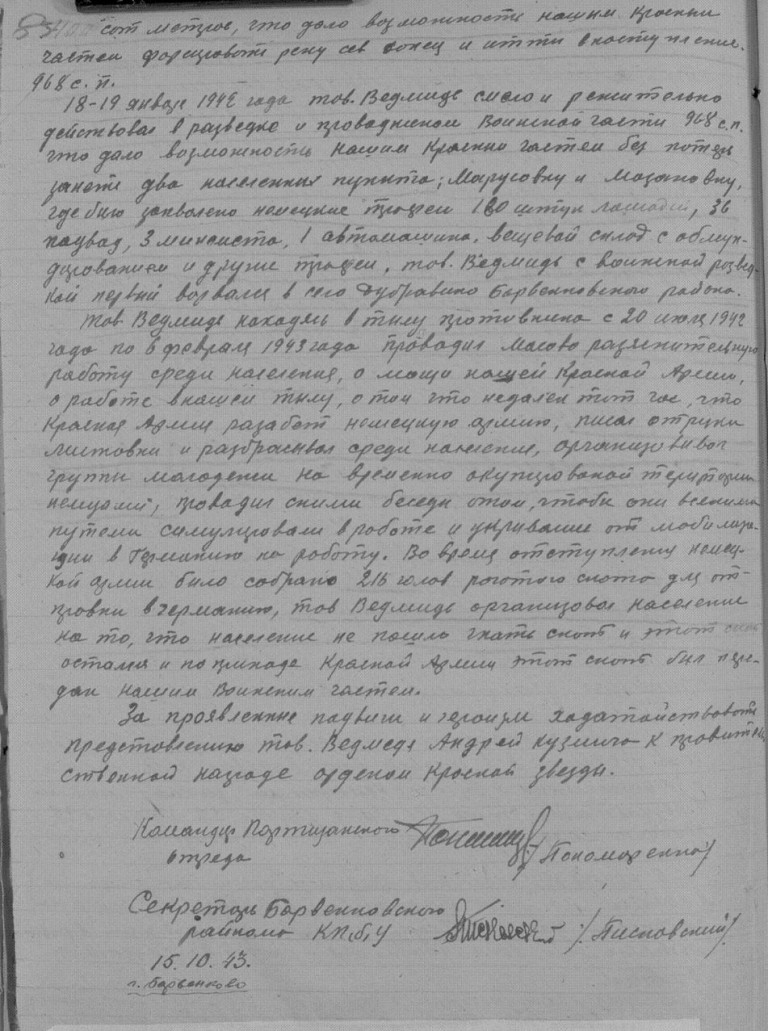 сот метров, что дало возможности нашим Красным
частям форсировать реку сев донец и итти в наступление.
968 с. п.
18-19 января 1942 года тов. Ведмидь смело и решительно
действовал в разведке и проводником Воинской части 968 с.п.
что дало возможность нашим Красным частям без потерь
занять два населенных пункта; Марусовку и Мазановку,
где было захвалено немецкие трофеи 160 штук лошадей, 36
подвод, 3 миномиота, 1 автомашина, вещевой склад с обмун-
дированием и другие трофеи, тов. Ведмидь с воинской развед-
кой первый ворвался в село Дубравино Барвенковского района.
Тов Ведмидь находясь в тылу противника с 20 июля 1942
года по 6 февраля 1943 года проводил масово разяснительную
работу среди населения, о мощи нашей Красной Армии,
о работе в нашей тылу, о том что недалек тот час, что
Красная Армия разабет немецкую армию, писал от руки
листовки и разбрасывал среди населения, организовивал
группи молодежи на временно окупированой територии
немцами, проводил сними беседи отом, чтоби они всекими
путеми симулировали в работе и укривание от мобилиза-
ции в Германию на работу. Во время отступления немец-
кой армии било собрано 216 голов рогатого скота для от-
правки в германию, тов Ведмидь организовал население
на то, что население не пошло гнать скот и этот скот
остался и по приходе Красной Армии этот скот бил пере-
дан нашим Воинским частям.
За проявленные подвиги и героизм ходатайствовать
представлению тов. Ведмедь Андрей Кузмича к правитель
ственной награде орденом Красной звезды.
Командир Партизанского
отряда /Пономаренко/
Секретарь Барвенковского
райкома КП(б)У /Писповский/
15.10.43.
г. Барвенково